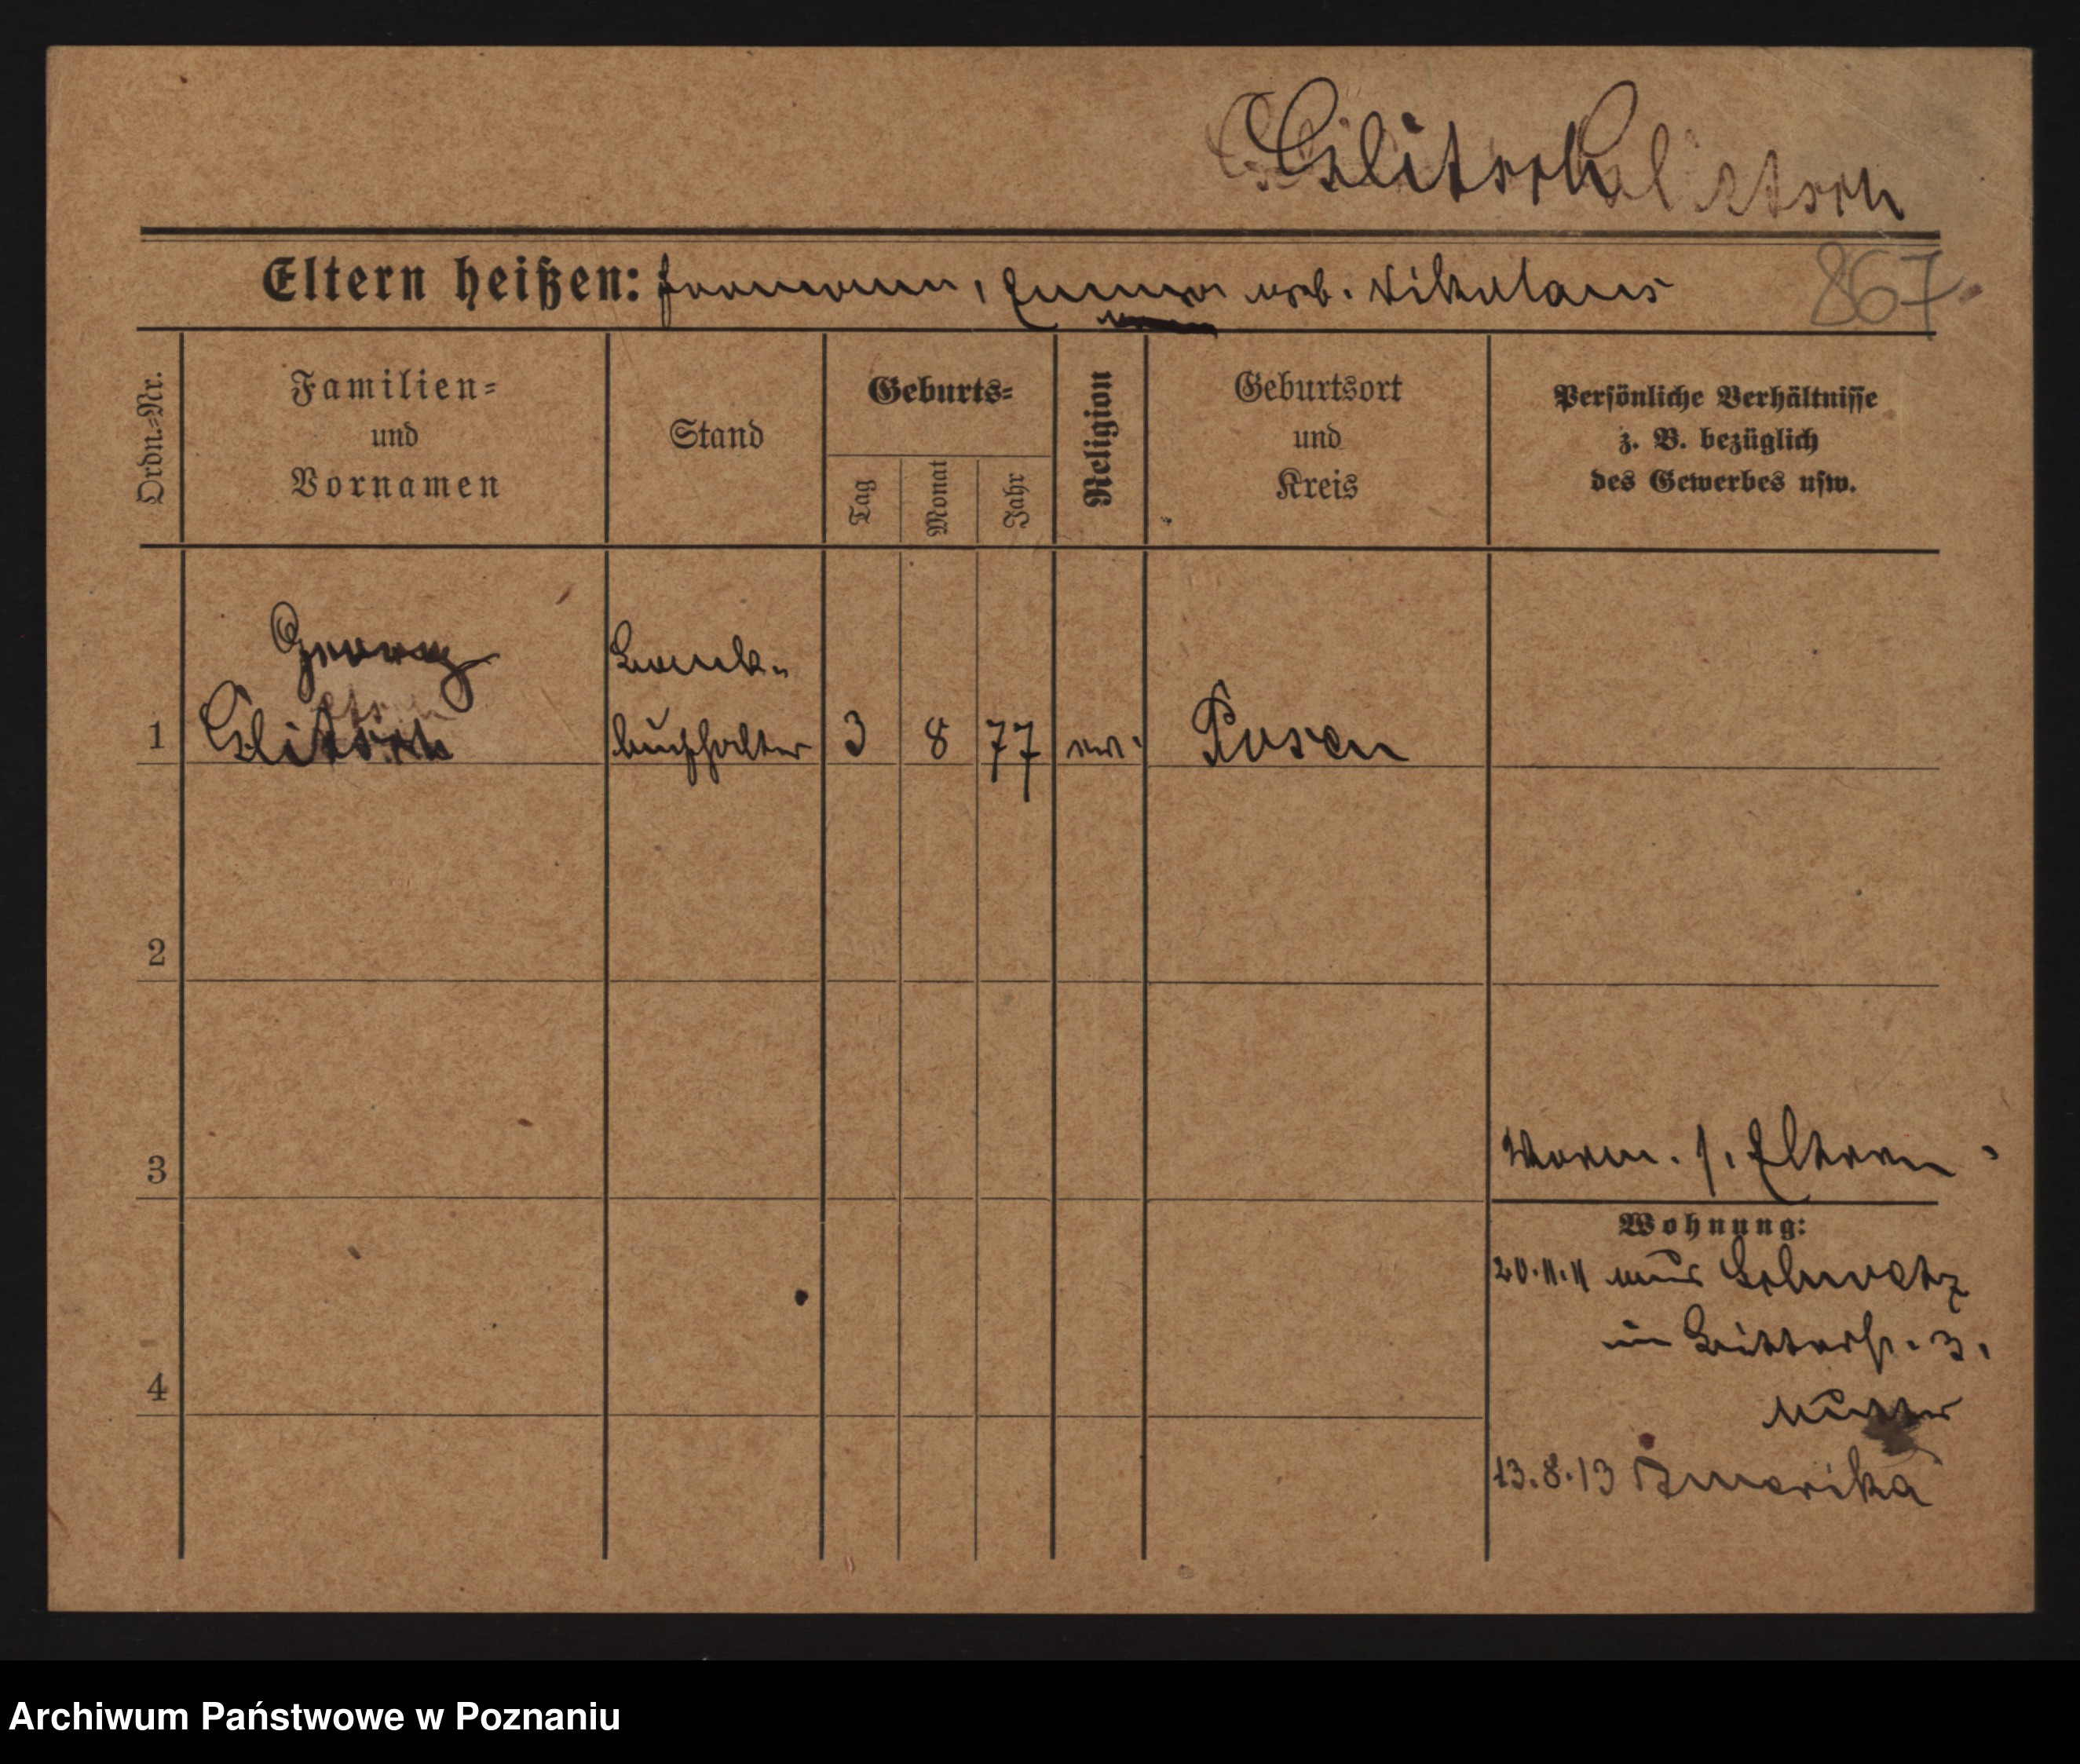 Glitsch
Eltern heißen: Hermann, Emma geb. Nikolaus 867
Ordn.=Nr.
Familien=
und
Vornamen
Stand
Geburts=
Tag
Monat
Jahr
Religion
Geburtsort
und
Kreis
Persönliche Verhältnisse
z. B. bezüglich
des Gewerbes usw.
Georg Bank-
1 Glitsch buchhalter 3 8 77 ev. Posen
2
3 Verm. s. Eltern
Wohnung:
20.11.11 aus Schwetz
in Ritterstr. 3.
Mutter
4
13.8.13 Amerika
Archiwum Państwowe w Poznaniu